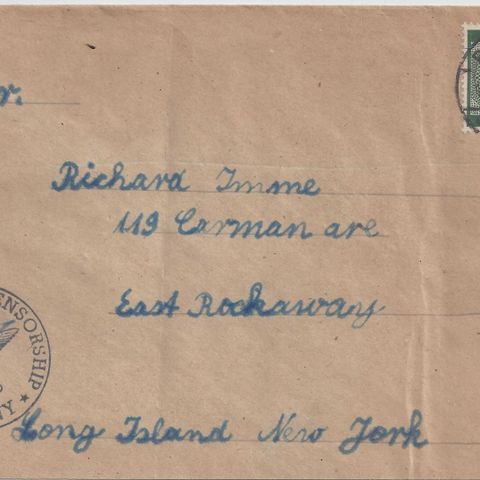 r.
Richard Imme
119 Carman are
East Rockaway
Long Island New York
ENSORSHIP
NY